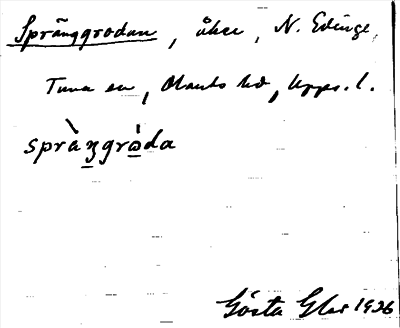 Språnggrodan, åker, N. Edinge,
Tuna sn, Olands hd, Upps. l.
sprà̀ŋgrò̱da
Gösta Glas 1936